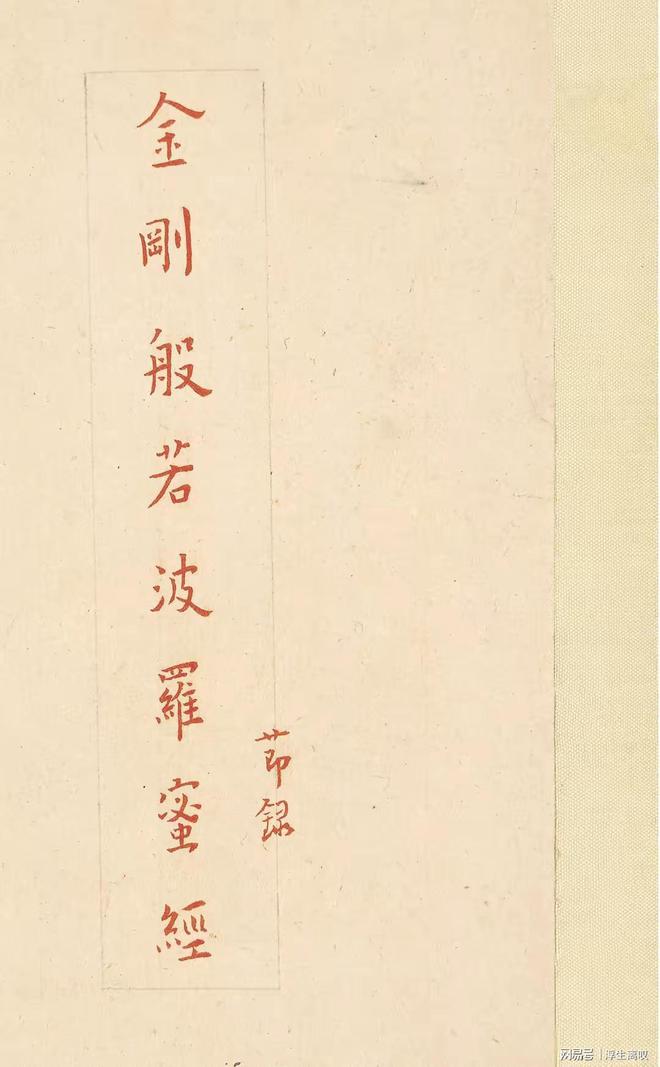 金剛般若波羅蜜經
節録
网易号 | 浮生离叹